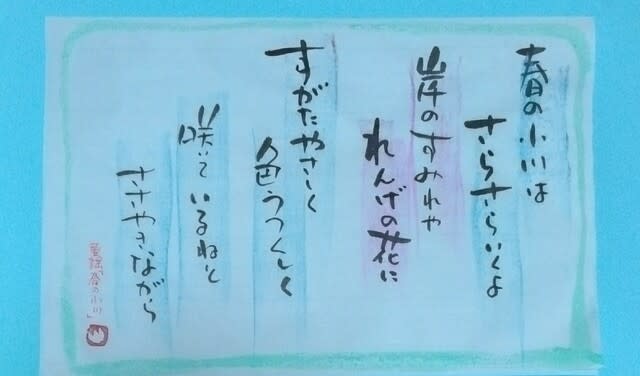 春の小川は
さらさらいくよ
岸のすみれや
れんげの花に
すがたやさしく
色うつくしく
咲いているねと
ささやきながら
童謡「春の小川」